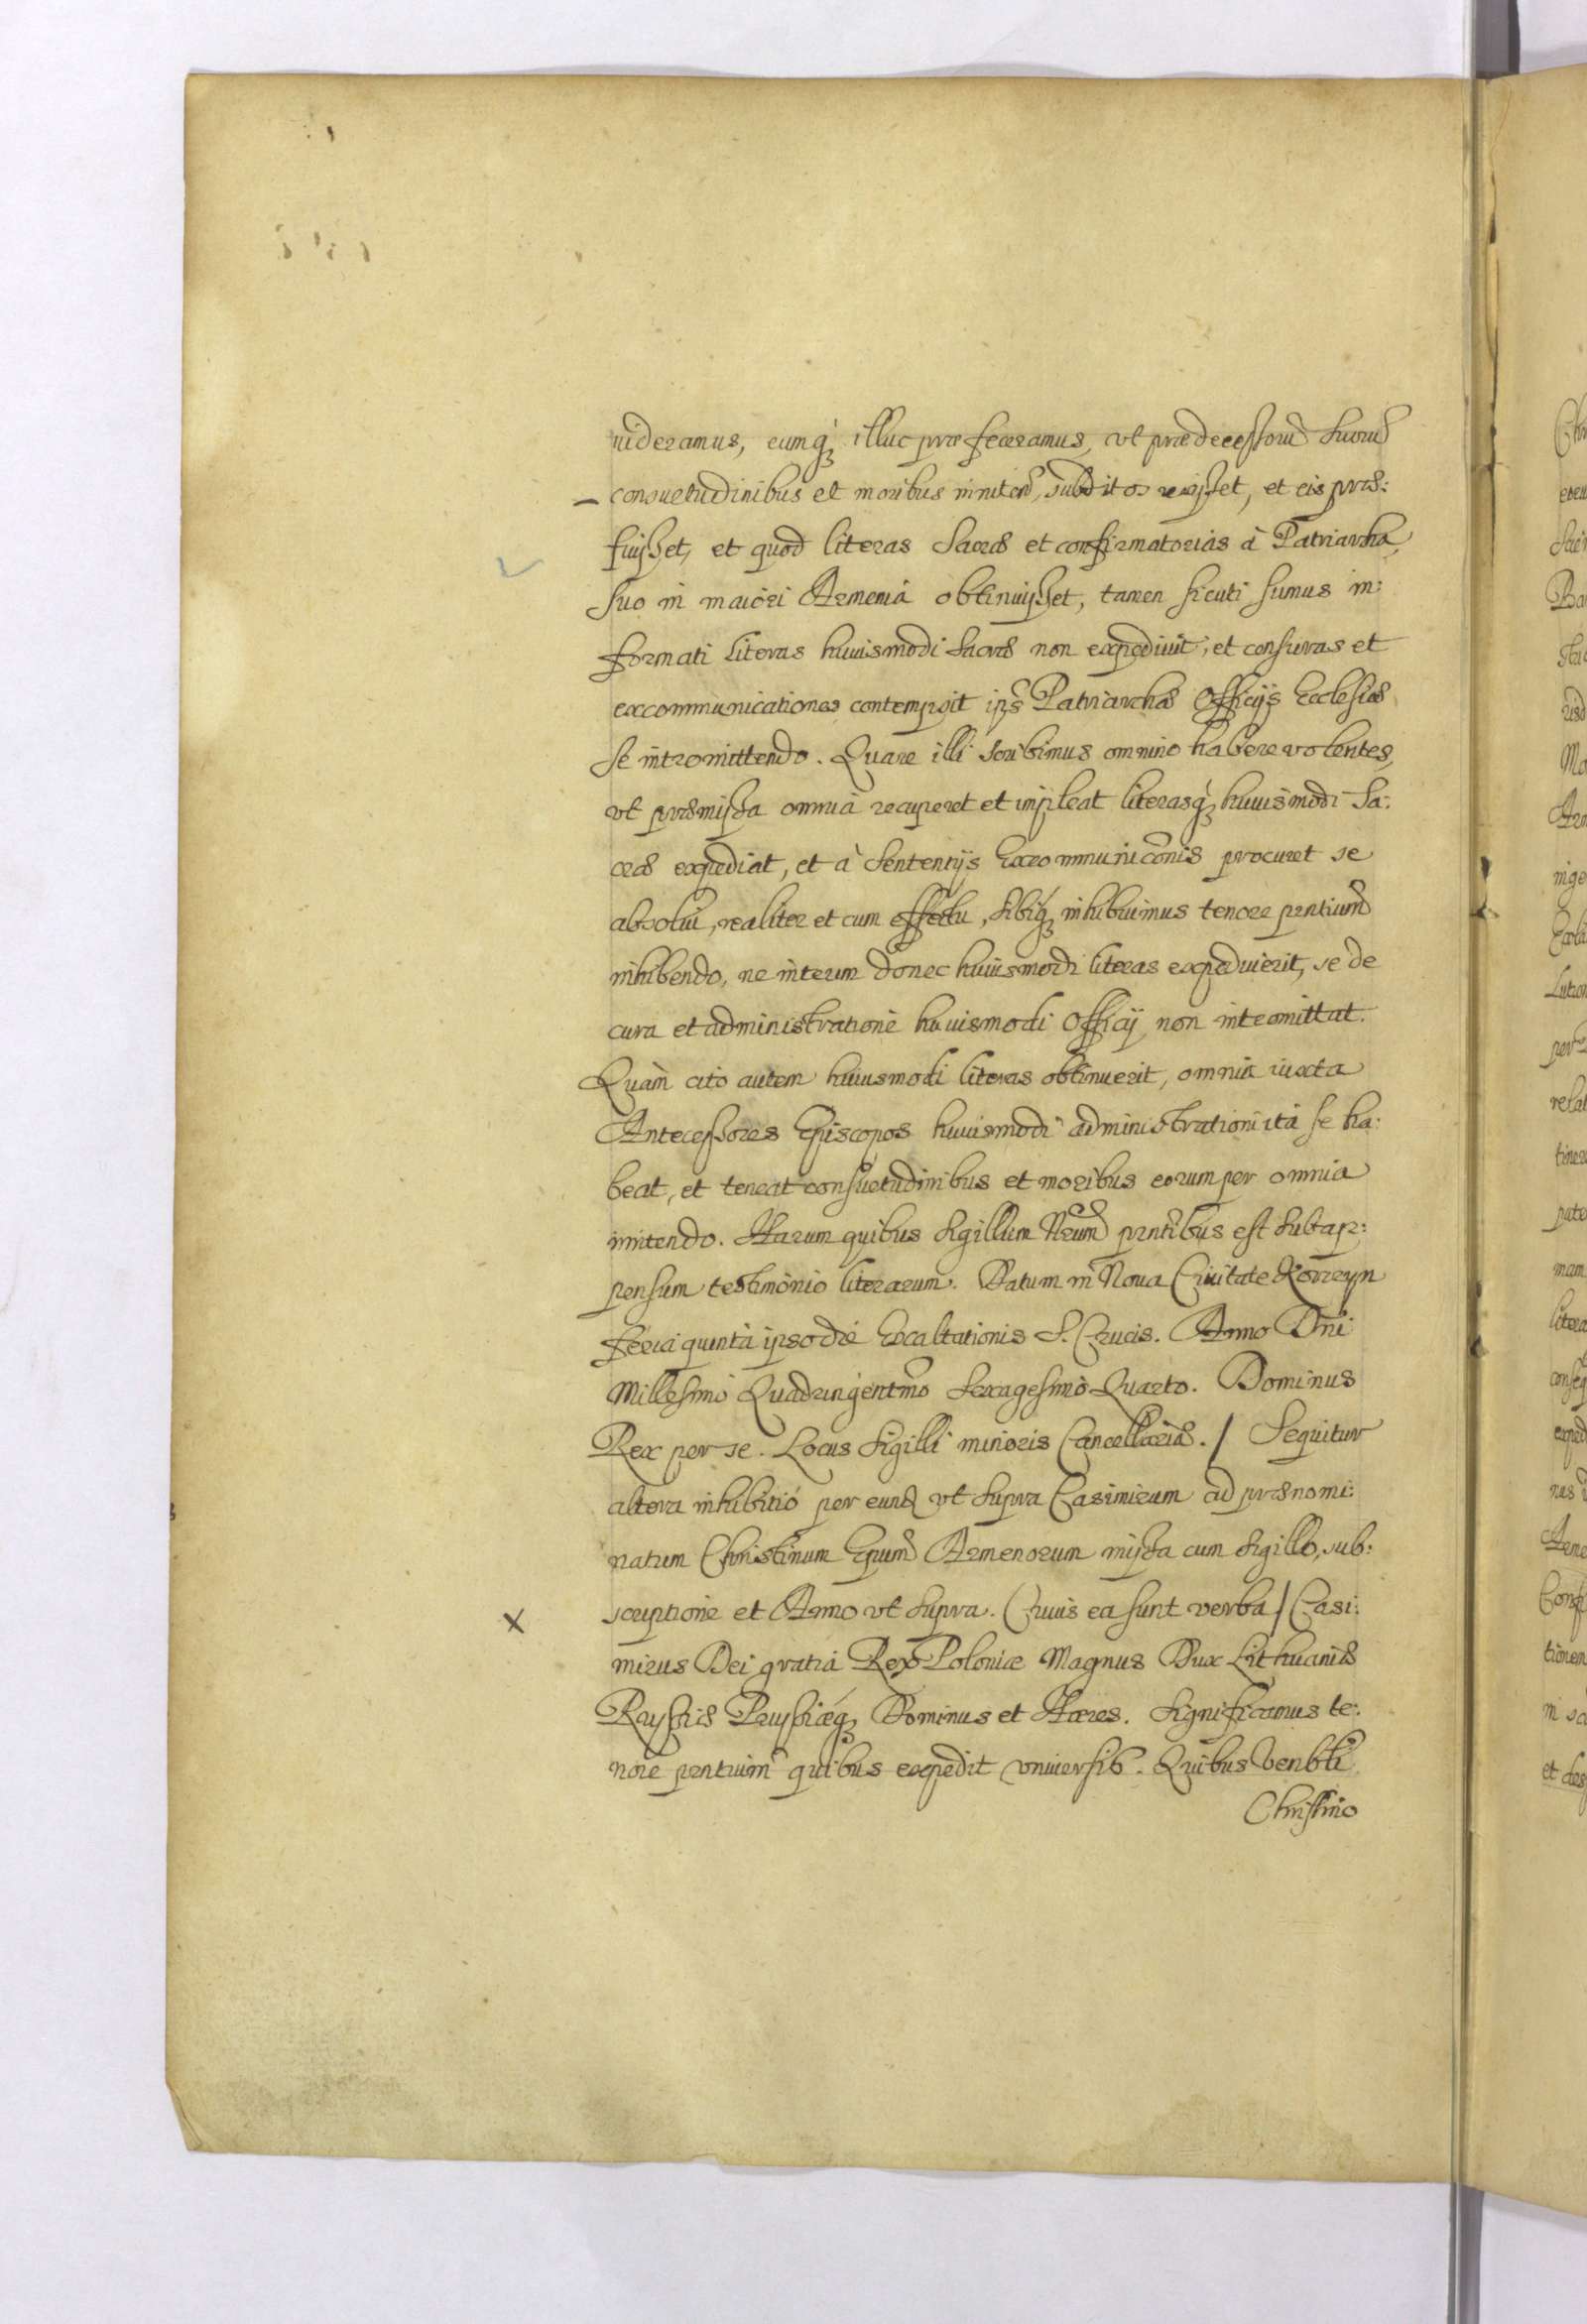 uideramus, eumq́ꝫ illuc præfeceramus, vt prædecessorū suorū
consuetudinibus et moribus innitendo, subditos rexisset, et eis præ:
fuisset, et quod literas Sacræ et confirmatorias à Patriarcha
suo in maiori Armenia obtinuisset, tamen sicuti sumus in:
formati literas huiusmodi sacræ non expediuit, et censuras et
excommunicationes contempsit ips̄ Patriarchæ Officijs Ecclesiæ
se intromittendo. Quare illi scribimus omnino habere volentes,
vt præmissa omnia recuperet et impleat literasq́ꝫ huiusmodi Sa:
cræ expediat, et à Sententijs Excommunicōnis procuret se
absolui, realiter et cum effectu, sibiq́ꝫ inhibuimus tenore pntium
inhibendo, ne interim donec huiusmodi literas expediuerit, se de
cura et administratione huiusmodi Officij non intromittat.
Quàm cito autem huiusmodi literas obtinuerit, omnia iuxta
Antecessores Episcopos huiusmodi administrationi ita se ha:
beat, et teneat consuetudinibus et moribus eorum per omnia
innitendo. Harum quibus Sigillum Nrūm pntibus est subap:
pensum testimonio literarum. Datum in Noua Ciuitate Korczyn
feria quinta ipso die Exaltationis S. Crucis. Anno Dni
Millesimo Quadringentmo Sexagesimo Quarto. Dominus
Rex per se. Locus Sigilli minoris Cancellariæ. / Sequitur
altera inhibitio per eund vt supra Casimirum ad prænomi:
natum Christinum Epum Armenorum missa cum Sigillo, sub:
scriptione et Anno vt supra. Cuius ea sunt verba / Casi:
mirus Dei gratia Rex Poloniæ Magnus Dux Lithuaniæ
Russiæ Prussiæq́ꝫ Dominus et Hæres. Significamus te:
nore pentium quibus expedit vniuersis. Quibus Venbli
Christino